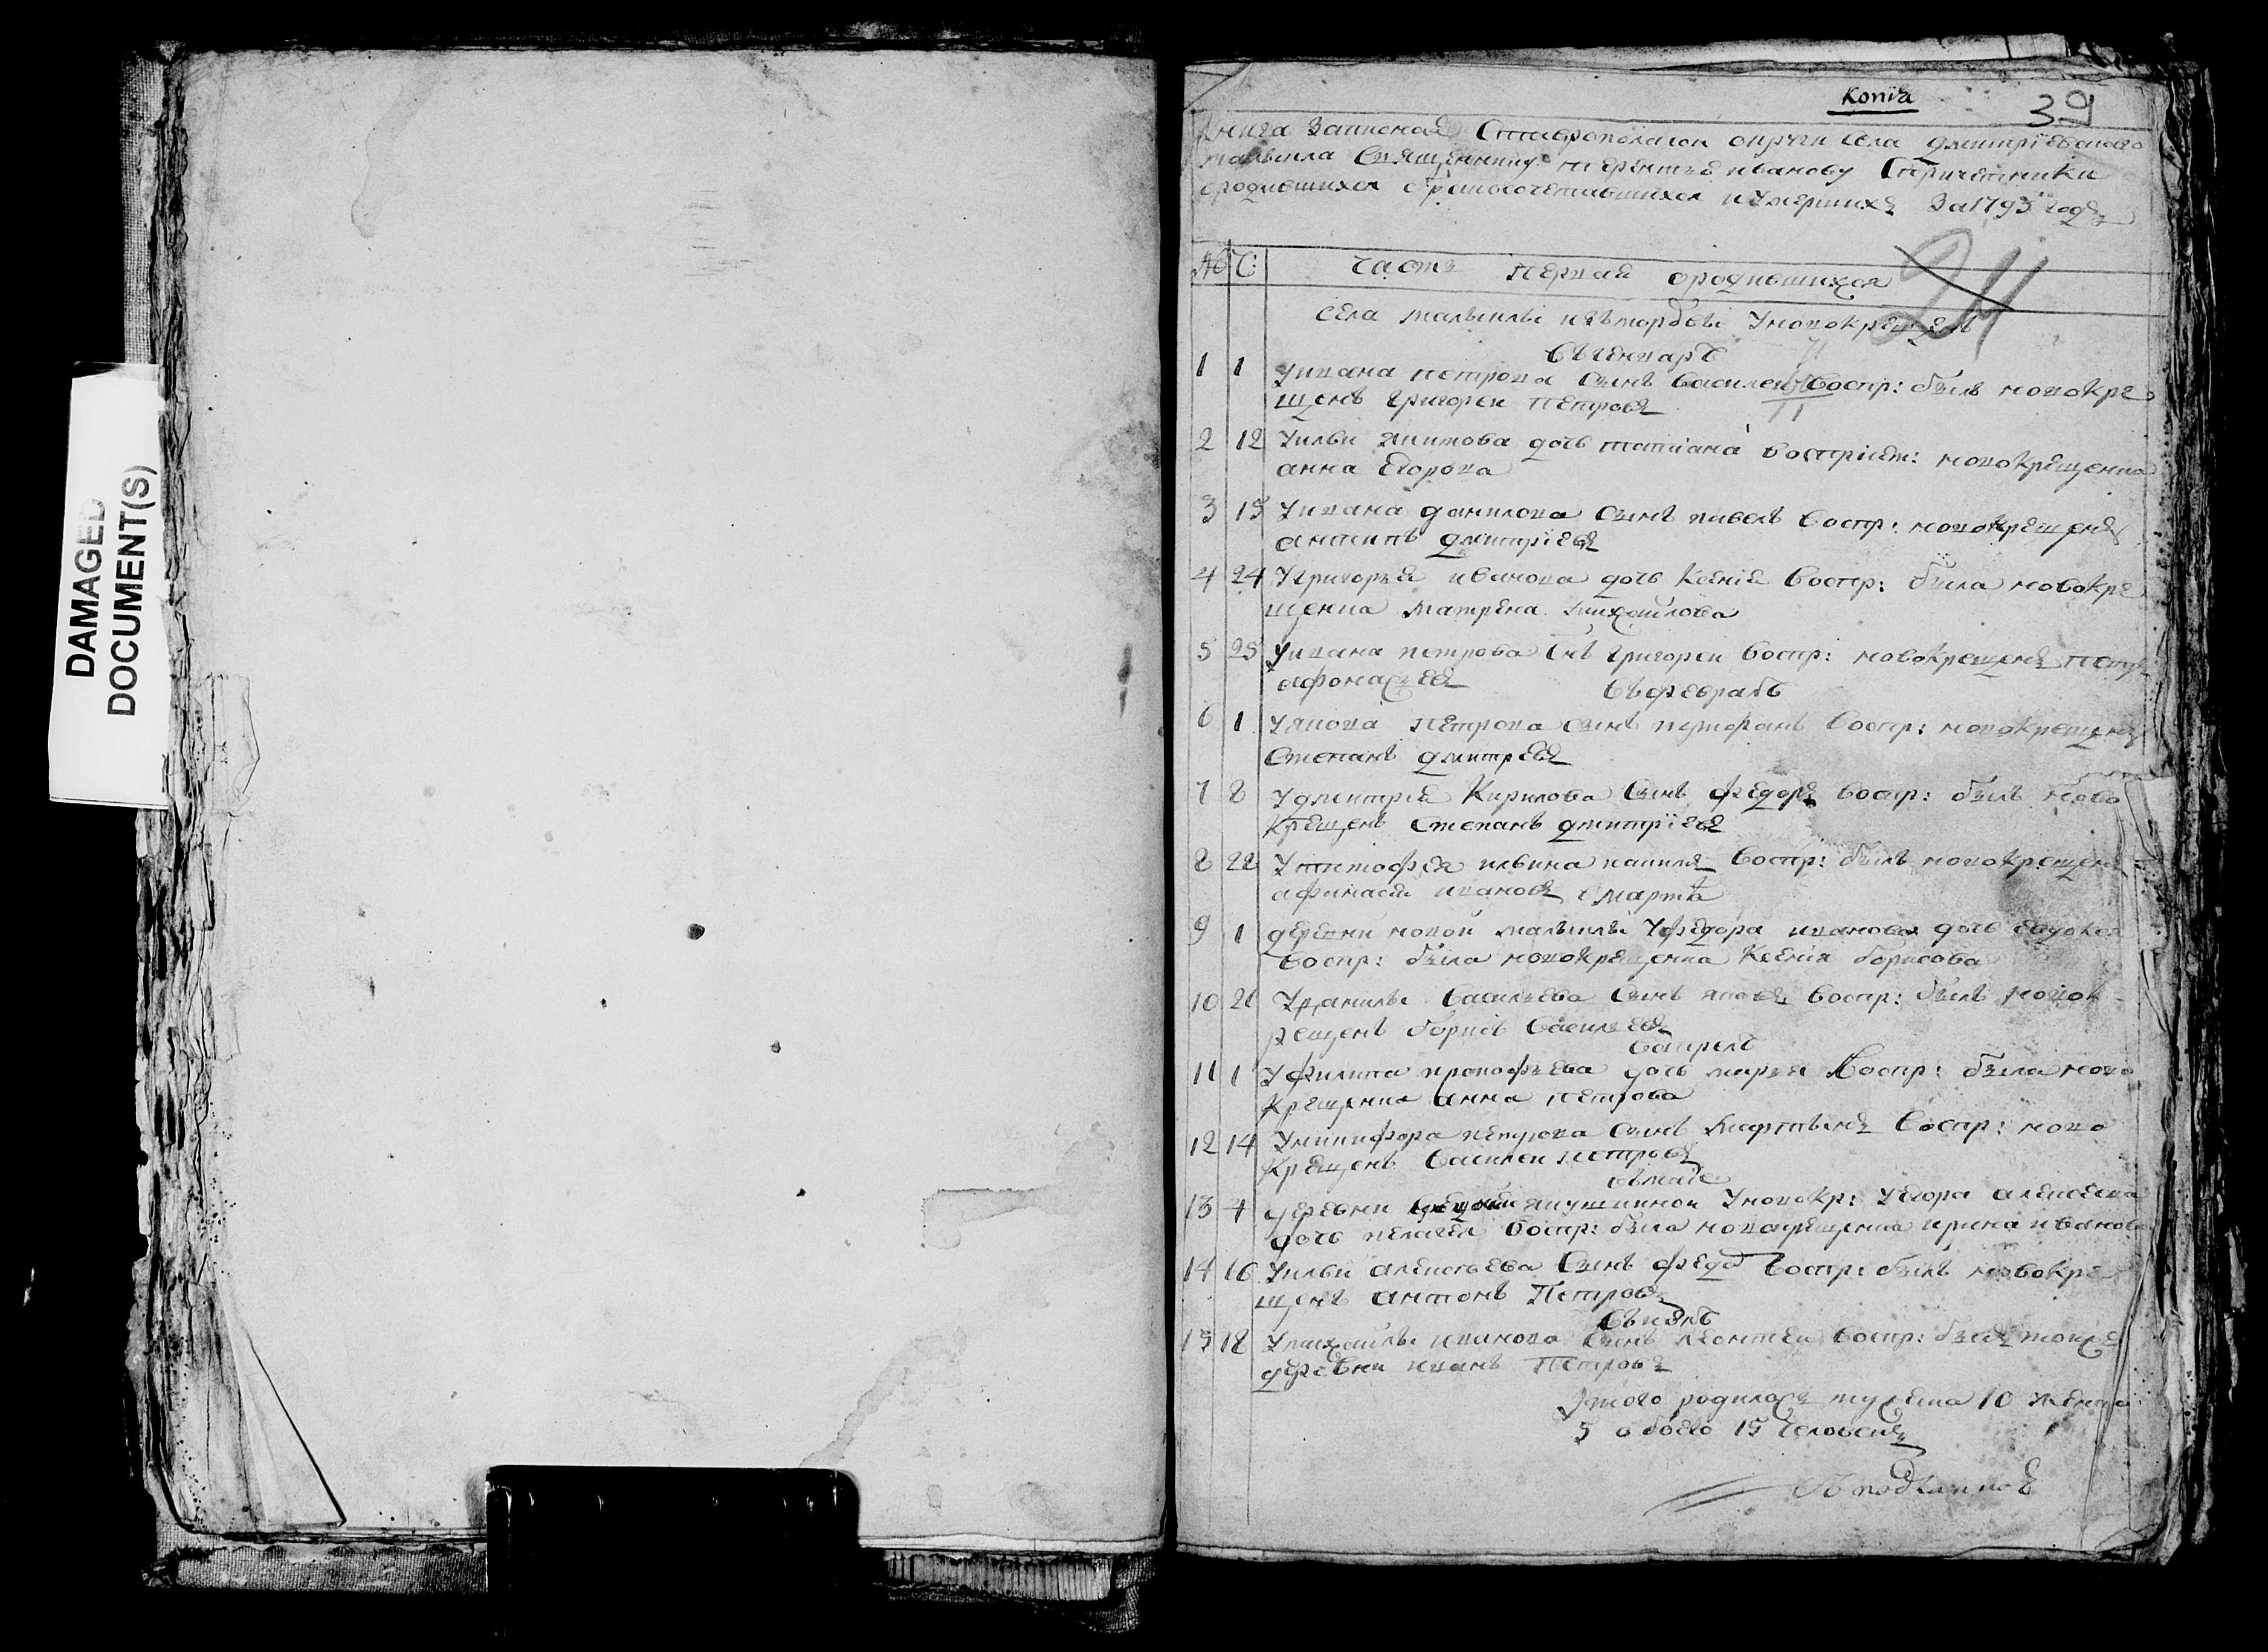 DAMAGED
DOCUMENT(S)
Копїа
39
Книга Записная Ставрополскои округи села Дмитрїевского
малыкла Священнику терентью иванову Спричетники
ородившихся обракосочетавшихся иумершихъ За1793 годъ
24
№ Ч: часть первая ородившихся
села малыклы измордвы Уновокрещенъ
Въ генваре
1 1 Уивана петрова сынъ василеи воспр: былъ новокре
щенъ григореи петровъ
2 12 Уильи никитова дочь татиана восприем: новокрещенна
анна Егорова
3 15 Уивана данилова сынъ павелъ воспр: новокрещенъ
антипъ дмитрїевъ
4 24 Угригорья иванова дочь Ксения воспр: была новокре
щенна матрена михаилова
5 25 Уивана петрова снъ григореи воспр: новокрещенъ петръ
афонасьевъ въ феврале
6 1 Уякова петрова сынъ воспр: новокрещенъ
Степанъ дмитревъ
7 8 Удмитрия Кирилова сынъ федоръ воспр: былъ ново
крещенъ Степанъ дмитрїевъ
8 22 Утимофея ильина воспр: былъ новокрещенъ
афанасеи ивановъ марта
9 1 деревни новои малыклы Уфедора иванова дочь евдокея
воспр: была новокрещенна Ксения борисова
10 21 Уданилы васильева сынъ яковъ воспр: былъ новок
рещенъ борисъ василъевъ
Вапреле
11 1 Уфилипа прокофьева дочь марья воспр: была ново
крещенна анна петрова
12 14 Уникифора петрова сынъ мартынъ воспр: ново
крещенъ василеи петровъ
вмаїе
13 7 деревни якушкинои Уновокр: Уегора алексеева
дочь пелагея воспр: была новокрещенна ирина иванова
14 16 Уильи алексеева сынъ федо воспр: былъ новокре
щенъ антонъ Петровъ
Въ июле
15 18 Умихаилы иванова сынъ леонтеи воспр: былъ тоиже
деревни иванъ Петровъ
Этого родилось мужеска 10 женска
5 обоего 15 человекъ